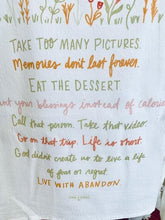 TAKE TOO MANY PICTURES.
Memories don't last forever.
EAT THE DESSERT.
your blessings instead of
Call that person. Take that video.
Go on that trip. Life is short.
God didn't create us to live a life
of fear or regret.
LIVE WITH ABANDON.